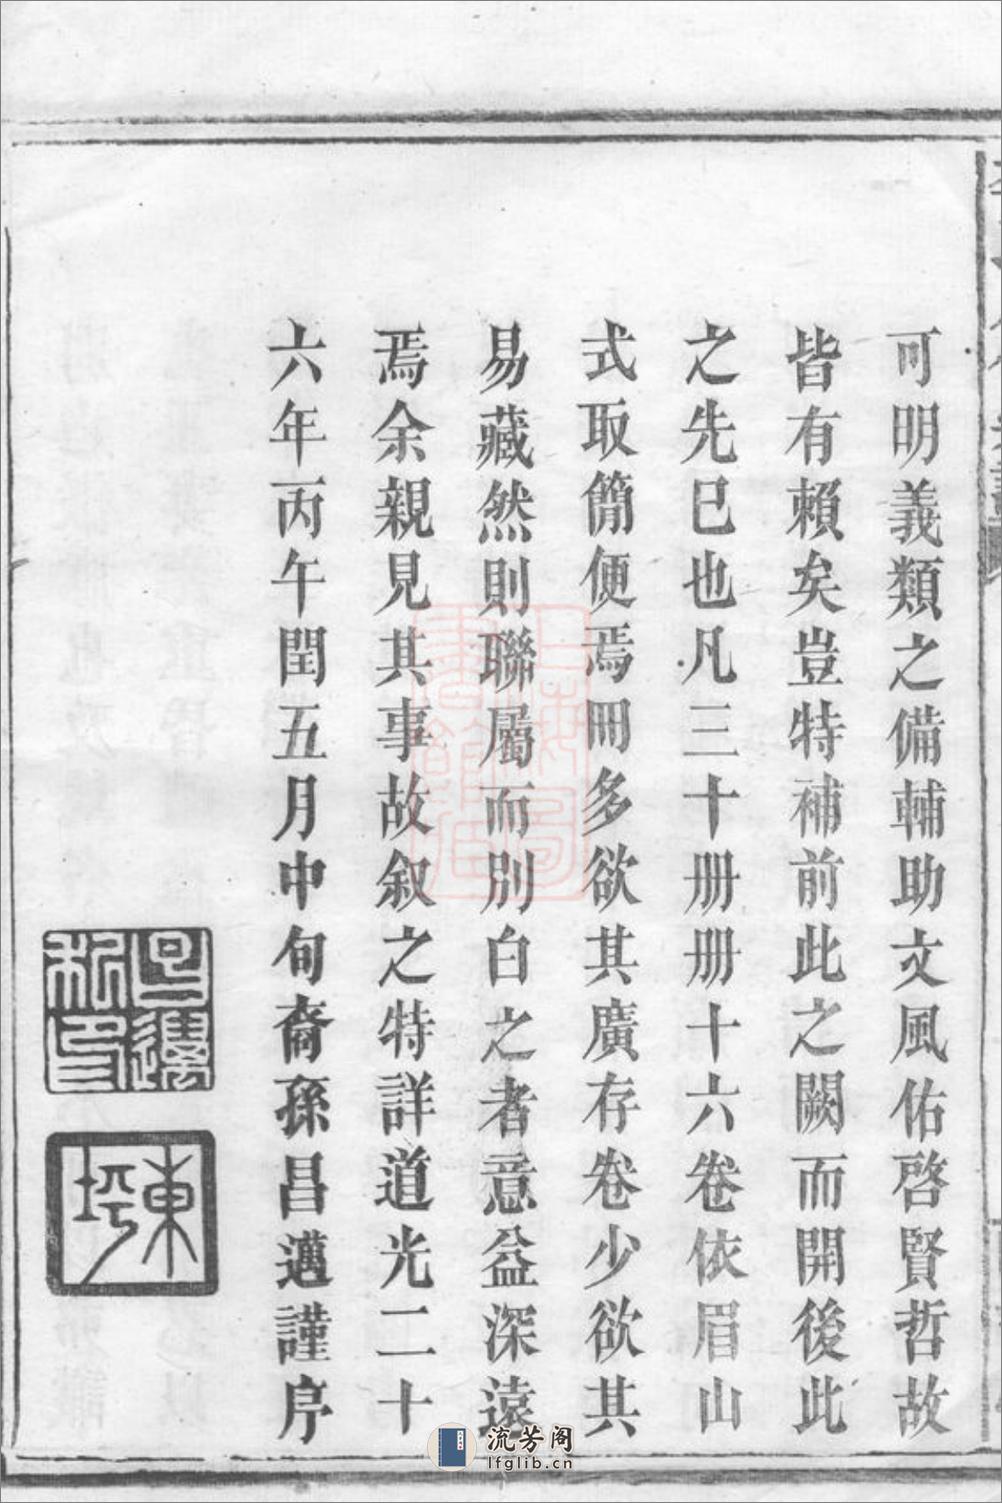 可明義類之備輔助文風佑啓賢哲故
皆有賴矣豈特補前此之闕而開後此
之先已也凡三十册册十六卷依眉山
式取簡便焉冊多欲其廣存卷少欲其
易藏然則聯屬而別白之者意益深遠
焉余親見其事故叙之特詳道光二十
六年丙午閏五月中旬裔孫昌邁謹序
東坪
流芳阁
lfglib.cn